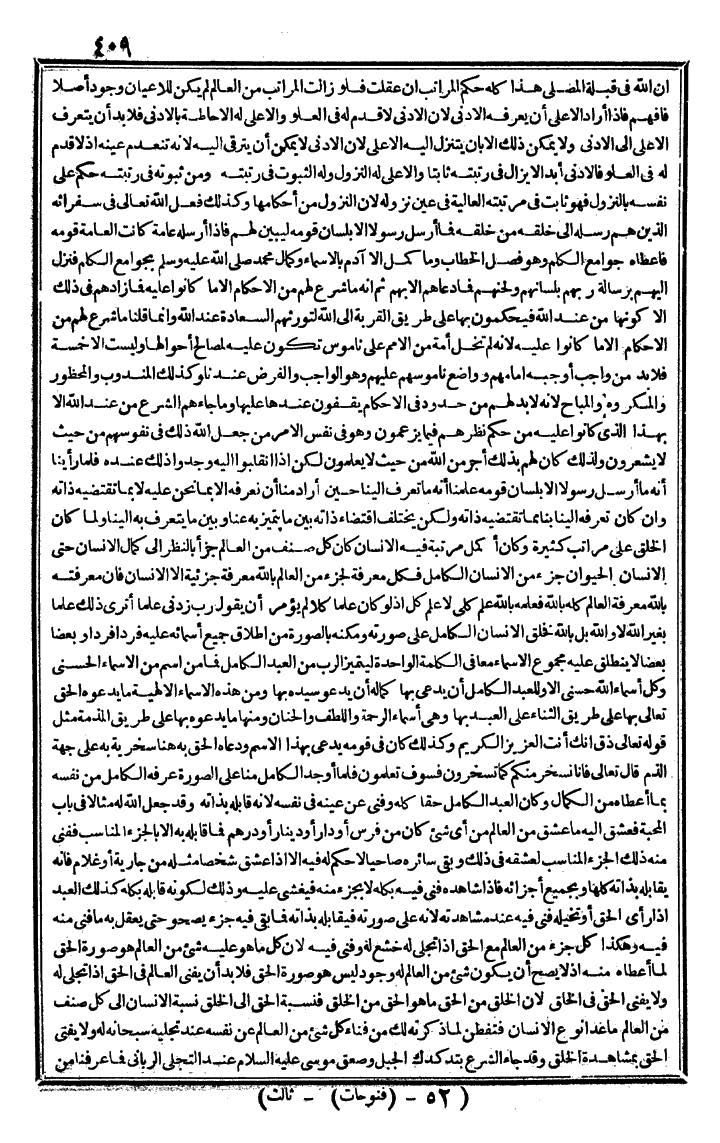 ٤٠٩
ان الله فى قبلة المصلى هذا كله حكم المراتب ان عقلت فلو زالت المراتب من العالم لم يكن للاعيان وجود أصلا
فافهم فاذا أراد الاعلى أن يعرفه الادنى لان الادنى لا قدم له فى العلو والاعلى له الاحاطة بالادنى فلابد أن يتعرف
الاعلى الى الادنى ولا يمكن ذلك الا بان يتنزل اليه الاعلى لان الادنى لا يمكن أن يترقى اليه لانه تنعدم عينه اذلا قدم
له فى العلو فالادنى أبدا لا يزال فى رتبته ثابتا والاعلى له النزول وله الثبوت فى رتبته ومن ثبوته فى رتبته حكم على
نفسه بالنزول فهو ثابت فى مرتبته العالية فى عين نزوله لان النزول من أحكامها وكذلك فعل الله تعالى فى سفرائه
الذين هم رسله الى خلقه من خلقه فما أرسل رسولا الا بلسان قومه ليبين لهم فاذا أرسله عامة كانت العامة قومه
فاعطاه جوامع الكلم وهو فصل الخطاب وما كمل الا آدم بالاسماء وكمال محمد صلى الله عليه وسلم بجوامع الكلم فنزل
اليهم برسالة ربهم بلسانهم ولحنهم فما دعاهم الا بهم ثم انه ما شرع لهم من الاحكام الا ما كانوا عليه فما زادهم فى ذلك
الا كونها من عند الله فيحكمون بها على طريق القربة الى الله لتورثهم السعادة عند الله وانما قلنا ما شرع لهم من
الاحكام الا ما كانوا عليه لانه لم تخل أمة من الامم على ناموس تكون عليه لمصالح أحوالها وليست الا خمسة
فلابد من واجب أوجبه امامهم وواضع ناموسهم عليهم وهو الواجب والفرض عندنا وكذلك المندوب والمحظور
والمكروه والمباح لانه لابد لهم من حدود فى الاحكام يقفون عندها عليها وما جاءهم الشرع من عند الله الا
بهذا الذى كانوا عليه من حكم نظرهم فيما يزعمون وهو فى نفس الامر من جعل الله ذلك فى نفوسهم من حيث
لا يشعرون ولذلك كان لهم بذلك أجر من الله من حيث لا يعلمون لكن اذا انقلبوا اليه وجدوا ذلك عنده فلما رأينا
أنه ما أرسل رسولا الا بلسان قومه علمنا أنه ما تعرف الينا حين أراد منا أن نعرفه الا بما نحن عليه لا بما تقتضيه ذاته
وان كان تعرفه الينا بنا مما تقتضيه ذاته ولكن يختلف اقتضاء ذاته بين ما يتميز به عنا وبين ما يتعرف به الينا ولما كان
الخلق على مراتب كثيرة وكان أكمل مرتبة فيه الانسان كان كل صنف من العالم جزأ بالنظر الى كمال الانسان حتى
الانسان الحيوان جزء من الانسان الكامل فكل معرفة لجزء من العالم بالله معرفة جزئية الا الانسان فان معرفته
بالله معرفة العالم كله بالله فعلمه بالله علم كلى لا علم كل اذ لو كان علما كلا لم يؤمر أن يقول رب زدنى علما أترى ذلك علما
بغير الله لا والله بل بالله خلق الانسان الكامل على صورته ومكنه بالصورة من اطلاق جميع أسمائه عليه فردا فردا وبعضا
بعضا لا ينطلق عليه مجموع الاسماء معا فى الكلمة الواحدة ليتميز الرب من العبد الكامل فما من اسم من الاسماء الحسنى
وكل أسماء الله حسنى الا وللعبد الكامل أن يدعى بها كما له أن يدعو سيده بها ومن هذه الاسماء الالهية ما يدعوه الحق
تعالى بها على طريق الثناء على العبد بها وهى أسماء الرحمة واللطف والحنان ومنها ما يدعوه بها على طريق المذمة مثل
قوله تعالى ذق انك أنت العزيز الكريم وكذلك كان فى قومه يدعى بهذا الاسم ودعاه الحق به هنا سخرية به على جهة
الذم قال تعالى فانا نسخر منكم كما تسخرون فسوف تعلمون فلما أوجد الكامل منا على الصورة عرفه الكامل من نفسه
بما أعطاه من الكمال وكان العبد الكامل حقا كله وفنى عن عينه فى نفسه لانه قابله بذاته وقد جعل الله له مثالا فى باب
المحبة فعشق اليه ما عشق من العالم من أى شئ كان من فرس أو دار أو دينار أو درهم فما قابله به الا بالجزء المناسب ففنى
منه ذلك الجزء المناسب لعشقه فى ذلك وبقى سائره صاحيا لا حكم له فيه الا اذا عشق شخصا مثله من جارية أو غلام فانه
يقابله بذاته كلها وبجميع أجزائه فاذا شاهده فنى فيه بكله لا بجزء منه فيغشى عليه وذلك لكونه قابله بكله كذلك العبد
اذا رأى الحق أو تخيله فنى فيه عند مشاهدته لانه على صورته فيقابله بذاته فما بقى فيه جزء يصحو حتى يعقل به ما فنى منه
فيه وهكذا كل جزء من العالم مع الحق اذا تجلى له خشع له وفنى فيه لان كل ما هو عليه شئ من العالم هو صورة الحق
لما أعطاه منه اذ لا يصح أن يكون شئ من العالم له وجود ليس هو صورة الحق فلا بد أن يفنى العالم فى الحق اذا تجلى له
ولا يفنى الحق فى الخلق لان الخلق من الحق ما هو الحق من الخلق فنسبة الحق الى الخلق نسبة الانسان الى كل صنف
من العالم ما عدا نوع الانسان فتفطن لما ذكرته لك من فناء كل شئ من العالم عن نفسه عند تجليه سبحانه له ولا يفنى
الحق بمشاهدة الخلق وقد جاء الشرع بتدكدك الجبل وصعق موسى عليه السلام عند التجلى الربانى فما عرفنا من
( ٥٢ - (فتوحات) - ثالث)